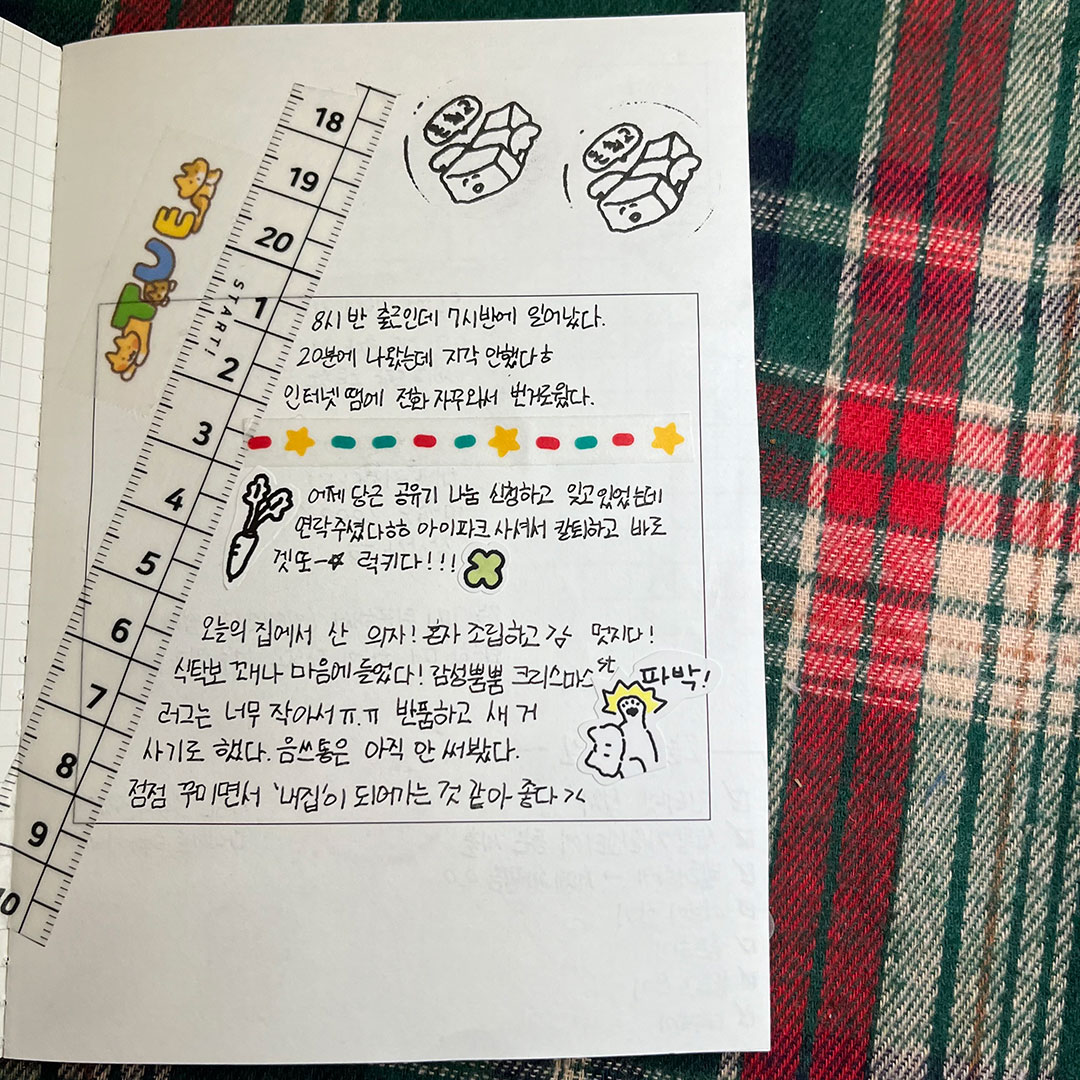 18
19
20
START!
1
2
3
4
5
6
7
8
9
10
TUE
8시 반 출근인데 7시반에 일어났다.
20분에 나왔는데 지각 안했다ㅎ
인터넷 땜에 전화 자꾸와서 번거로웠다.
어제 당근 공유기 나눔 신청하고 잊고있었는데
연락주셨다ㅎㅎ 아이파크 사셔서 칼퇴하고 바로
겟또-☆ 럭키다!!!
오늘의 집에서 산 의자! 혼자 조립하고 감 멋지다!
식탁보 꽤나 마음에 들었다! 감성뿜뿜 크리스마스
파박!
러그는 너무 작아서 ㅠ.ㅠ 반품하고 새 거
사기로 했다. 음쓰통은 아직 안 써봤다.
점점 꾸미면서 '내집'이 되어가는 것 같아 좋다